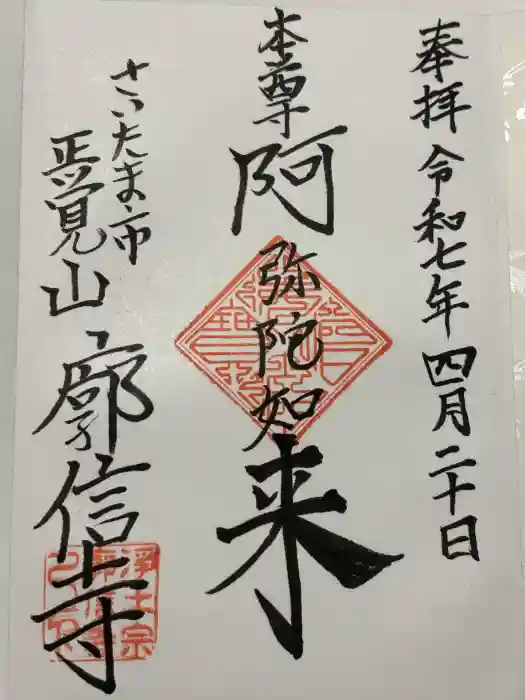 奉拝 令和七年四月二十日
本尊 阿弥陀如来
さいたま市
正覚山 廓信寺
浄土宗